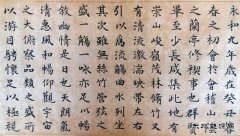 永和九年歲在癸丑暮
春之初會于會稽山陰
之蘭亭脩稧事也群賢
畢至少長咸集此地有
崇山峻領茂林脩竹又
有清流激湍映帶左右
引以為流觴曲水列坐
其次雖無絲竹管弦之
盛一觴一詠亦足以暢
敘幽情是日也天朗氣
清惠風和暢仰觀宇宙
之大俯察品類之盛所
以遊目騁懷足以極視